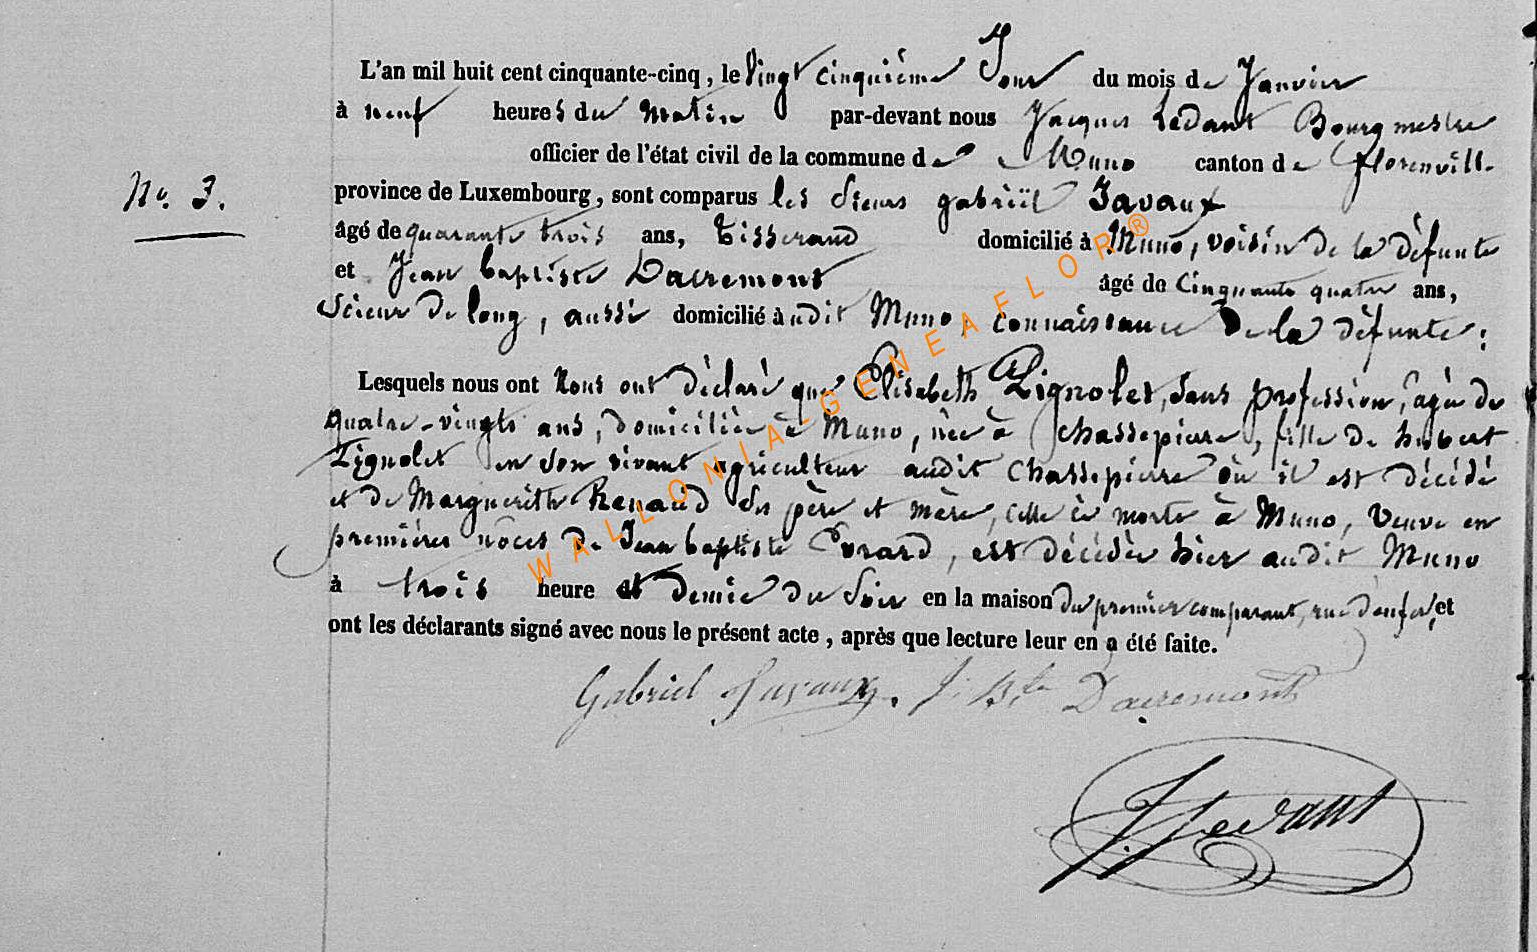 L'an mil huit cent cinquante-cinq, le vingt cinquième Jour du mois de Janvier
à neuf heures du Matin par-devant nous Jacques Ledant Bourgmestre
officier de l'état civil de la commune de Muno canton de florenvill
N°. 3.
province de Luxembourg, sont comparus les Sieurs gabriël Javaux
âgé de quarante trois ans, Tisserand domicilié à Muno, voisin de la défunte
et Jean baptiste Dacremont âgé de Cinquante quatre ans,
Scieur de long, aussi domicilié audit Muno, connaissance de la défunte;
Lesquels nous ont Nous ont déclaré que Elisabeth Lignolet, Sans profession, âgée de
quatre-vingts ans, domiciliée à Muno, née à Chassepierre, fille de hubert
Lignolet en Son vivant agriculteur audit Chassepierre où il est décédé
et de Marguerithe Renaud Ses père et mère, Celle ci morte à Muno, Veuve en
premières nôces de Jean baptiste Evrard, est décédée hier audit Muno
à trois heure et demie du Soir en la maison du premier comparant, rue d'enfer, et
ont les déclarants signé avec nous le présent acte, après que lecture leur en a été faite.
Gabriel Javaux. J: Bte Dacremont
J. Ledant
WALLONIA-GENEAFLOR®